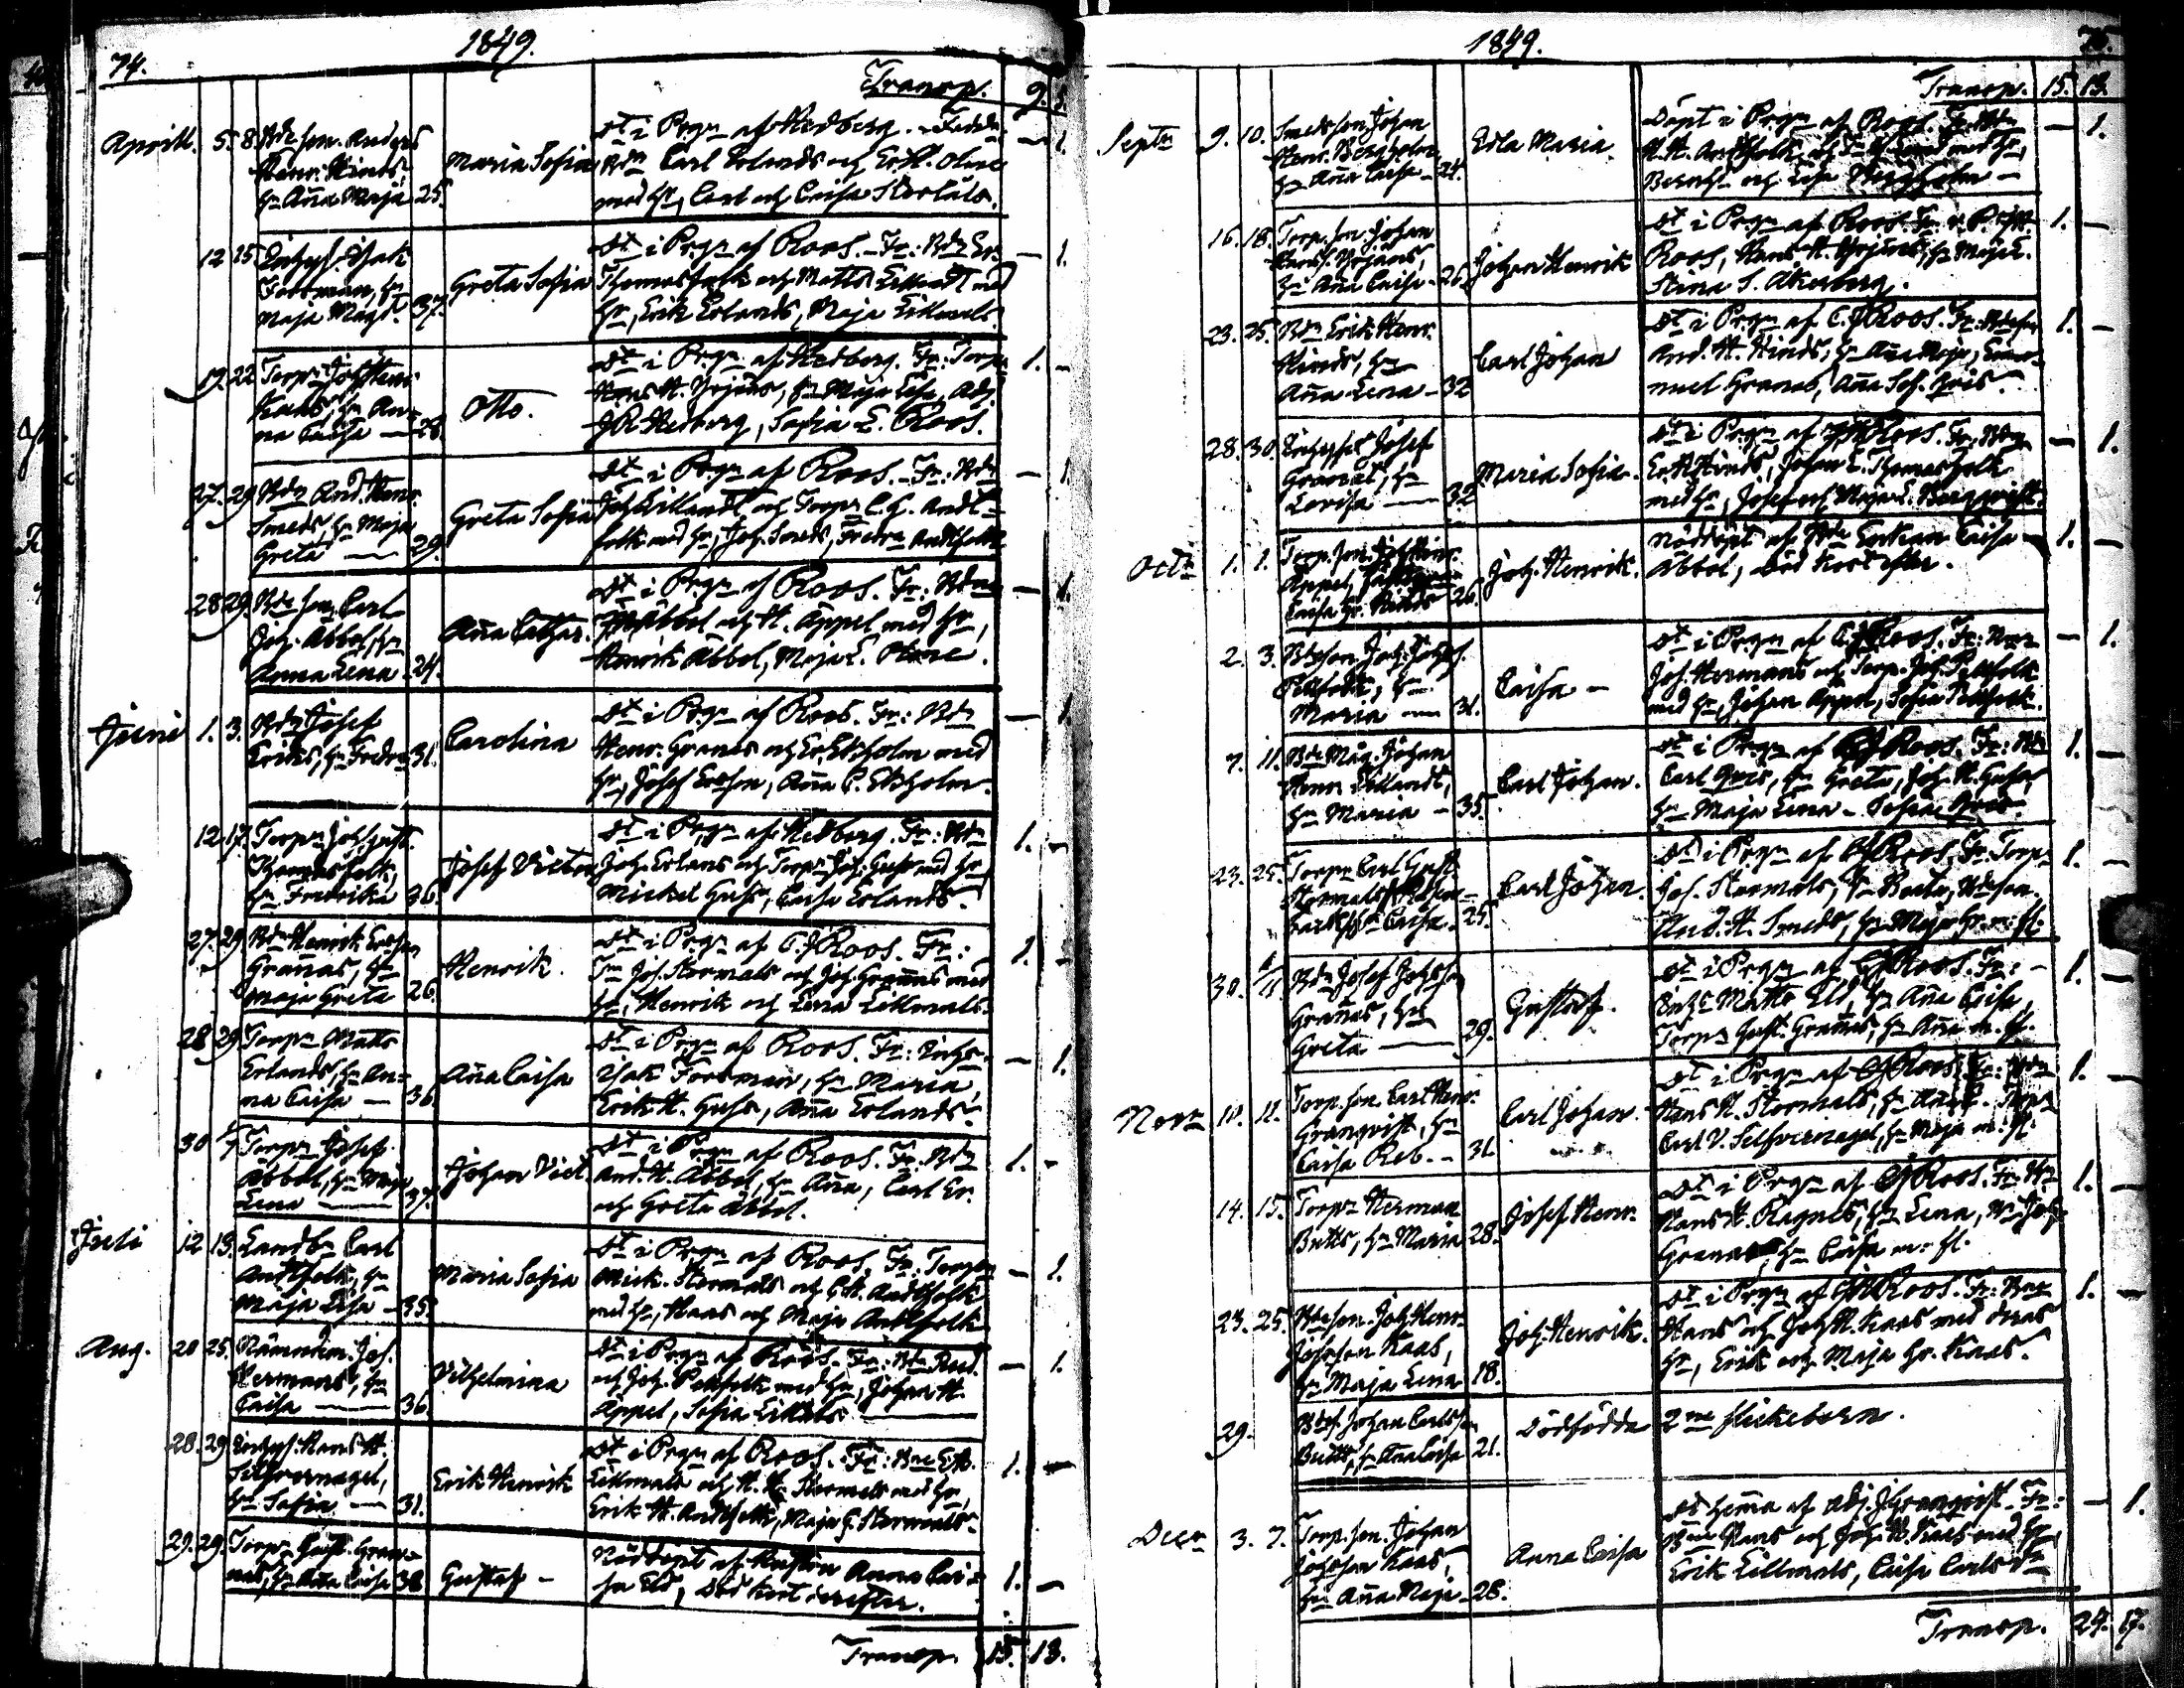 74.
1849.
Transp. 9. 5.
Aprill. 5. 8. Bde son. Anders
Henr. Hinds,
hu Aña Maja 25.
Maria Sofia
Dt i Prgn af Hedberg. – Fadd:
Bdn Carl Erlands och Er. H.
med hr, Carl och Caisa
— 1.
12 15 Inhys. Isak
Forsman, hu
Maja Magd. 37.
Greta Sofia
Dt i Prgn af Roos. – Fr: Bdn Er.
Thomasfolk och Matts Lillandt med
hr, Erik Erlands, Maja Lillmals.
— 1.
19. 22 Torpn Joh Henr.
Kaas, hu An-
na Caisa — 28.
Otto.
Dt i Prgn af Hedberg. Fr: Torpn
Hans H. Yrjäns, hu Maja Lisa, Adj.
Hedberg, Sofia E. Roos.
1. –
27. 29 Bdn And. Henr.
Smeds hu Maja
Greta — 29.
Greta Sofia
Dt i Prgn af Roos. – Fr: Bdn
Joh Lillandt och Torpn C. G. Andt-
folk med hr, Joh. Smeds, Fredra Andtfolk
— 1.
28 29. Bde son Carl
Joh. Abbol, hu
Anna Lena 24.
Aña Cathar.
Dt i Prgn af Roos. Fr: Bdne
Abbol och H. Appel med hr,
Henrik Abbol, Maja L.
— 1.
Junii 1. 3. Bdn Josef
Eriks, hu Fredra 31.
Carolina
Dt i Prgn af Roos. Fr: Bdn
Henr. Granas och Er. Ekholm med
hr, Josef Ersson, Aña C. Ekholm.
— 1.
12 17. Torpn Joh Gust.
Thomasfolk,
hu Fredrika 36.
Josef Victor
Dt i Prgn af Hedberg. Fr: Bdn
Joh. Erlans och Torpn Joh. Guss med hr
Mickel Guss, Caisa Erlands.
1. –
27. 29 Bdn Henrik Ersson
Granas, hu
Maja Greta 26.
Henrik.
Dt i Prgn af C. J Roos. Fr:
Tn Jos. Stormals och Joh. Granas med
hr, Henrik och Lena Lillmals.
1. –
28 29 Torpn Matts
Erlands, hu An-
na Caisa — 36.
Aña Caisa
Dt i Prgn af Roos. Fr: Inhys
Isak Forsman, hu Maria,
Erik H. Guss, Aña Erlands.
— 1.
30 1/7 Torpn Josef
Abbol, hu Maja
Lena — 37.
Johan Vict.
Dt i Prgn af Roos. Fr. Bdn
And. H. Abbol, hu Aña, Carl Er.
och Greta Abbol.
1. –
Juli 12 13. Landbn Carl
Andtfolk, hu
Maja Lisa – 35.
Maria Sofia
Dt i Prgn af Roos. Fr: Torpn
Mick. Stormals och C. H. Andtfolk
med hr, Klaas och Maja Andtfolk
— 1.
Aug. 20 25. Nämndem. Jos.
Hermans, hu
Caisa — 36.
Vilhelmina
Dt i Prgn af Roos. Fr: Bdn And.
och Joh. Pellfolk med hr, Johan H.
Appel, Sofia Lillmals —
— 1.
28. 29. Inhys. Hans H.
Silfvernagel,
hu Sofia — 31.
Erik Henrik
Dt i Prgn af Roos. Fr: Bne E. H.
Lillmals och H. H. Stormals med hr,
Erik H. Andtfolk, Maja G. Stormals.
1. –
29. 29. Torpn Gust. Gran-
nas, hu Aña Caisa 38
Gustaf –
Nöddöpt af Hustrun Anna Cai-
sa Eld, Död kort derefter.
1. –
Transp. 15. 13.
1849. 75.
Transp. 15. 13.
Septr 9. 10. Smedsson Johan
Henr. Bergholm,
hu Aña Caisa – 24.
Edla Maria.
Döpt i Prgn af Roos. Fr: Bdn
H. H. Andtfolk och med hr,
och Lisa Bergholm –
— 1.
16. 18. Torp. son Johan
Hanss. Yrjäns,
hu Aña Caisa – 26.
Johan Henrik
Dt i Prgn af Roos. Fr:
Roos, Hans H. Yrjans, hu Maja L.
Stina S. Åkerberg.
1. –
23. 25. Bdn Erik Henr.
Hinds, hu
Aña Lena – 32
Carl Johan
Dt i Prgn af C. J Roos. Fr: Bdeson
And. H. Hinds, hu Aña Maja, Ema-
nuel Granas, Aña Sof.
1. –
28. 30. Inhyses Josef
Granat, hu
Lovisa — 32
Maria Sofia.
Dt i Prgn af Roos. Fr: Bdn
Er. H Hinds, Johan E. Thomasfolk
med hr, Josef och Maja L. Bergqvist.
— 1.
Octr 1. 1. Torp. son. Joh Henr.
Appel,
Caisa hr. Hinds 26.
Joh. Henrik.
Nöddöpt af Enkan Caisa
Abbol, död kort efter.
1. –
2. 3. Bdeson Joh. Johs.
Pellfolk, hu
Maria — 31.
Caisa –
Dt i Prgn af C J Roos. Fr: Bdn
Jos. Hermans och Torp. Joh. Pellfolk
med hr, Johan Appel, Sofia Pellfolk.
— 1.
7. 11. Bde Måg. Johan
Henr. Lillandt,
hu Maria – 35.
Carl Johan.
Dt i Prgn af C J Roos. Fr: Bdn
Carl, hu Greta, Joh. H. Guss,
hu Maja Lena – Sofia
1. –
23. 25. Torpn Carl Gust.
Stormals
hu Caisa. 25.
Carl Johan.
Dt i Prgn af C J Roos. Fr: Torpn
Jos. Stormals, hu Beata, Bdeson
And. H. Smeds, hu Maja Gr. m: fl.
1. –
30. 4/11 Bdn Josef Johsson
Granas, hu
Greta — 29.
Gustaf.
Dt i Prgn af C J Roos. Fr: –
Inhs Matts Eld, hu Aña Caisa,
Torpn Gust. Granas, hu Aña m. fl.
1. –
Novr 10. 11. Torp. son. Carl Henr.
Granqvist, hu
Caisa Reb. – 31.
Carl Johan.
Dt i Prgn af C J Roos. Fr: Bdn
Hans H. Stormals, hu, Torpn
Carl V. Silfvernagel, hu Maja m: fl.
1. –
14. 15. Torpn Herman
Butts, hu Maria 28.
Josef Henr.
Dt i Prgn af C J Roos. Fr: Bdn
Hans H. Ragnels, hu Lena, Bn Joh
Granas, hu Caisa m: fl.
1. –
23. 25. Bdeson. Joh Henr.
Johsson Kaas,
hu Maja Lena 18.
Joh. Henrik.
Dt i Prgn af C J Roos. Fr: Bne
Hans och Joh H. Kaas med
hr, Erik och Maja Gr. Kaas.
1. –
29. Bdes. Johan Carlsson
Butts, hu Aña Caisa 21.
Dödfödda
2ne flickebarn.
Decr 3. 7. Torp. son. Johan
Johsson Kaas,
hu Aña Maja – 28.
Anna Caisa
Dt hema af Adj. J Granqvist – Fr:
Bne Hans och Joh. H. Kaas med hr,
Erik Lillmals, Caisa Carls
— 1.
Transp. 24. 17.